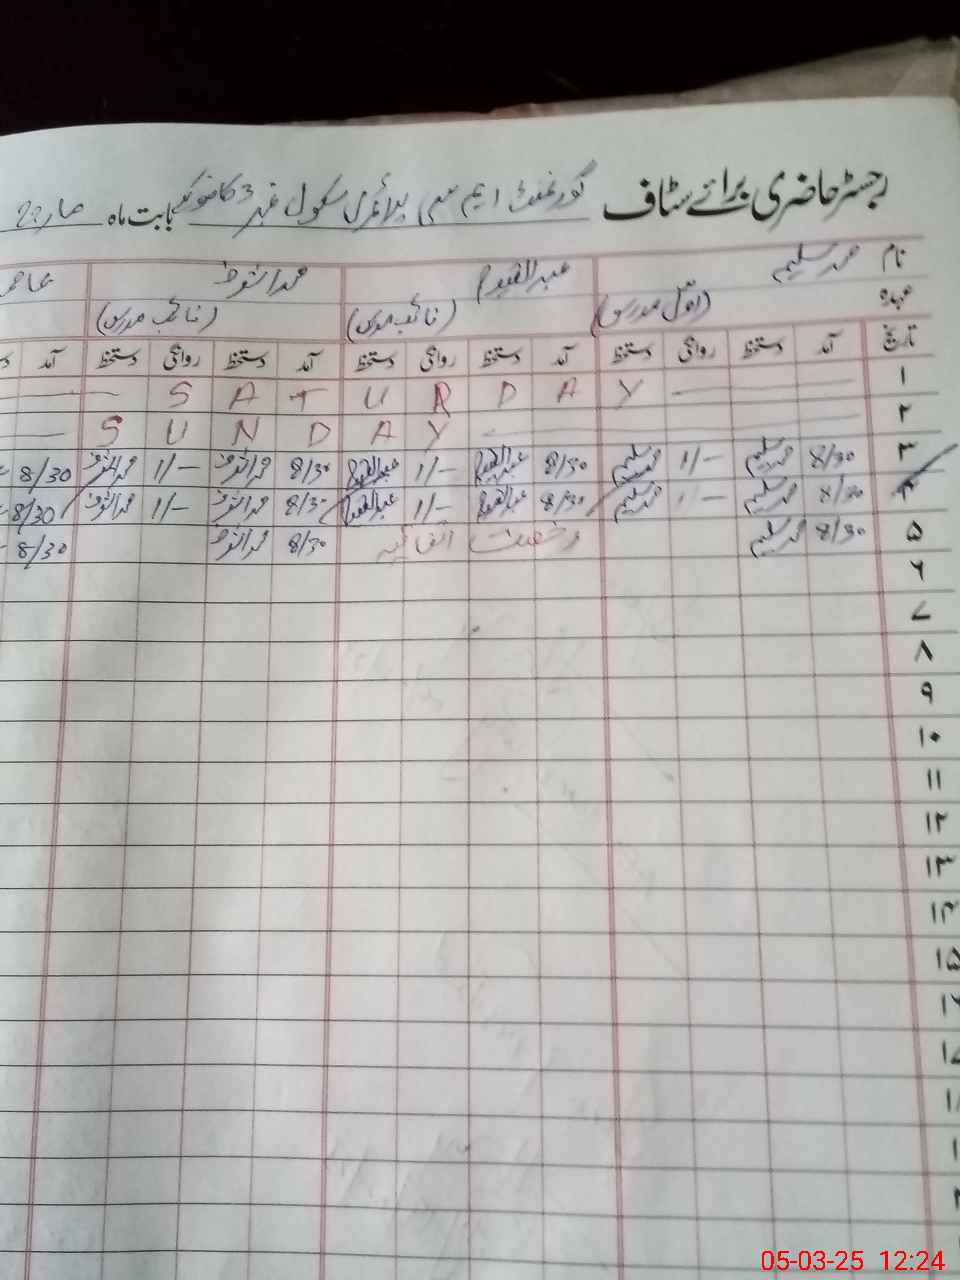 رجسٹر حاضری برائے سٹاف گورنمنٹ ایم سی پرائمری سکول نمبر 3 کامونکے بابت ماہ مارچ
نام محمد سلیم عبدالقیوم محمد اشرف
عہدہ (اول مدرس) (نائب مدرس) (نائب مدرس)
تاریخ آمد دستخط روانگی دستخط آمد دستخط روانگی دستخط آمد دستخط روانگی دستخط آمد
۱ S A T U R D A Y
۲ S U N D A Y
۳ 8/30 محمد سلیم 1/- محمد سلیم 8/30 عبدالقیوم 1/- عبدالقیوم 8/30 محمد اشرف 1/- محمد اشرف 8/30
۴ 8/30 محمد سلیم 1/- محمد سلیم 8/30 عبدالقیوم 1/- عبدالقیوم 8/30 محمد اشرف 1/- محمد اشرف 8/30
۵ 8/30 محمد سلیم رخصت اتفاقیہ 8/30 محمد اشرف 8/30
۶
۷
۸
۹
۱۰
۱۱
۱۲
۱۳
۱۴
۱۵
05-03-25 12:24